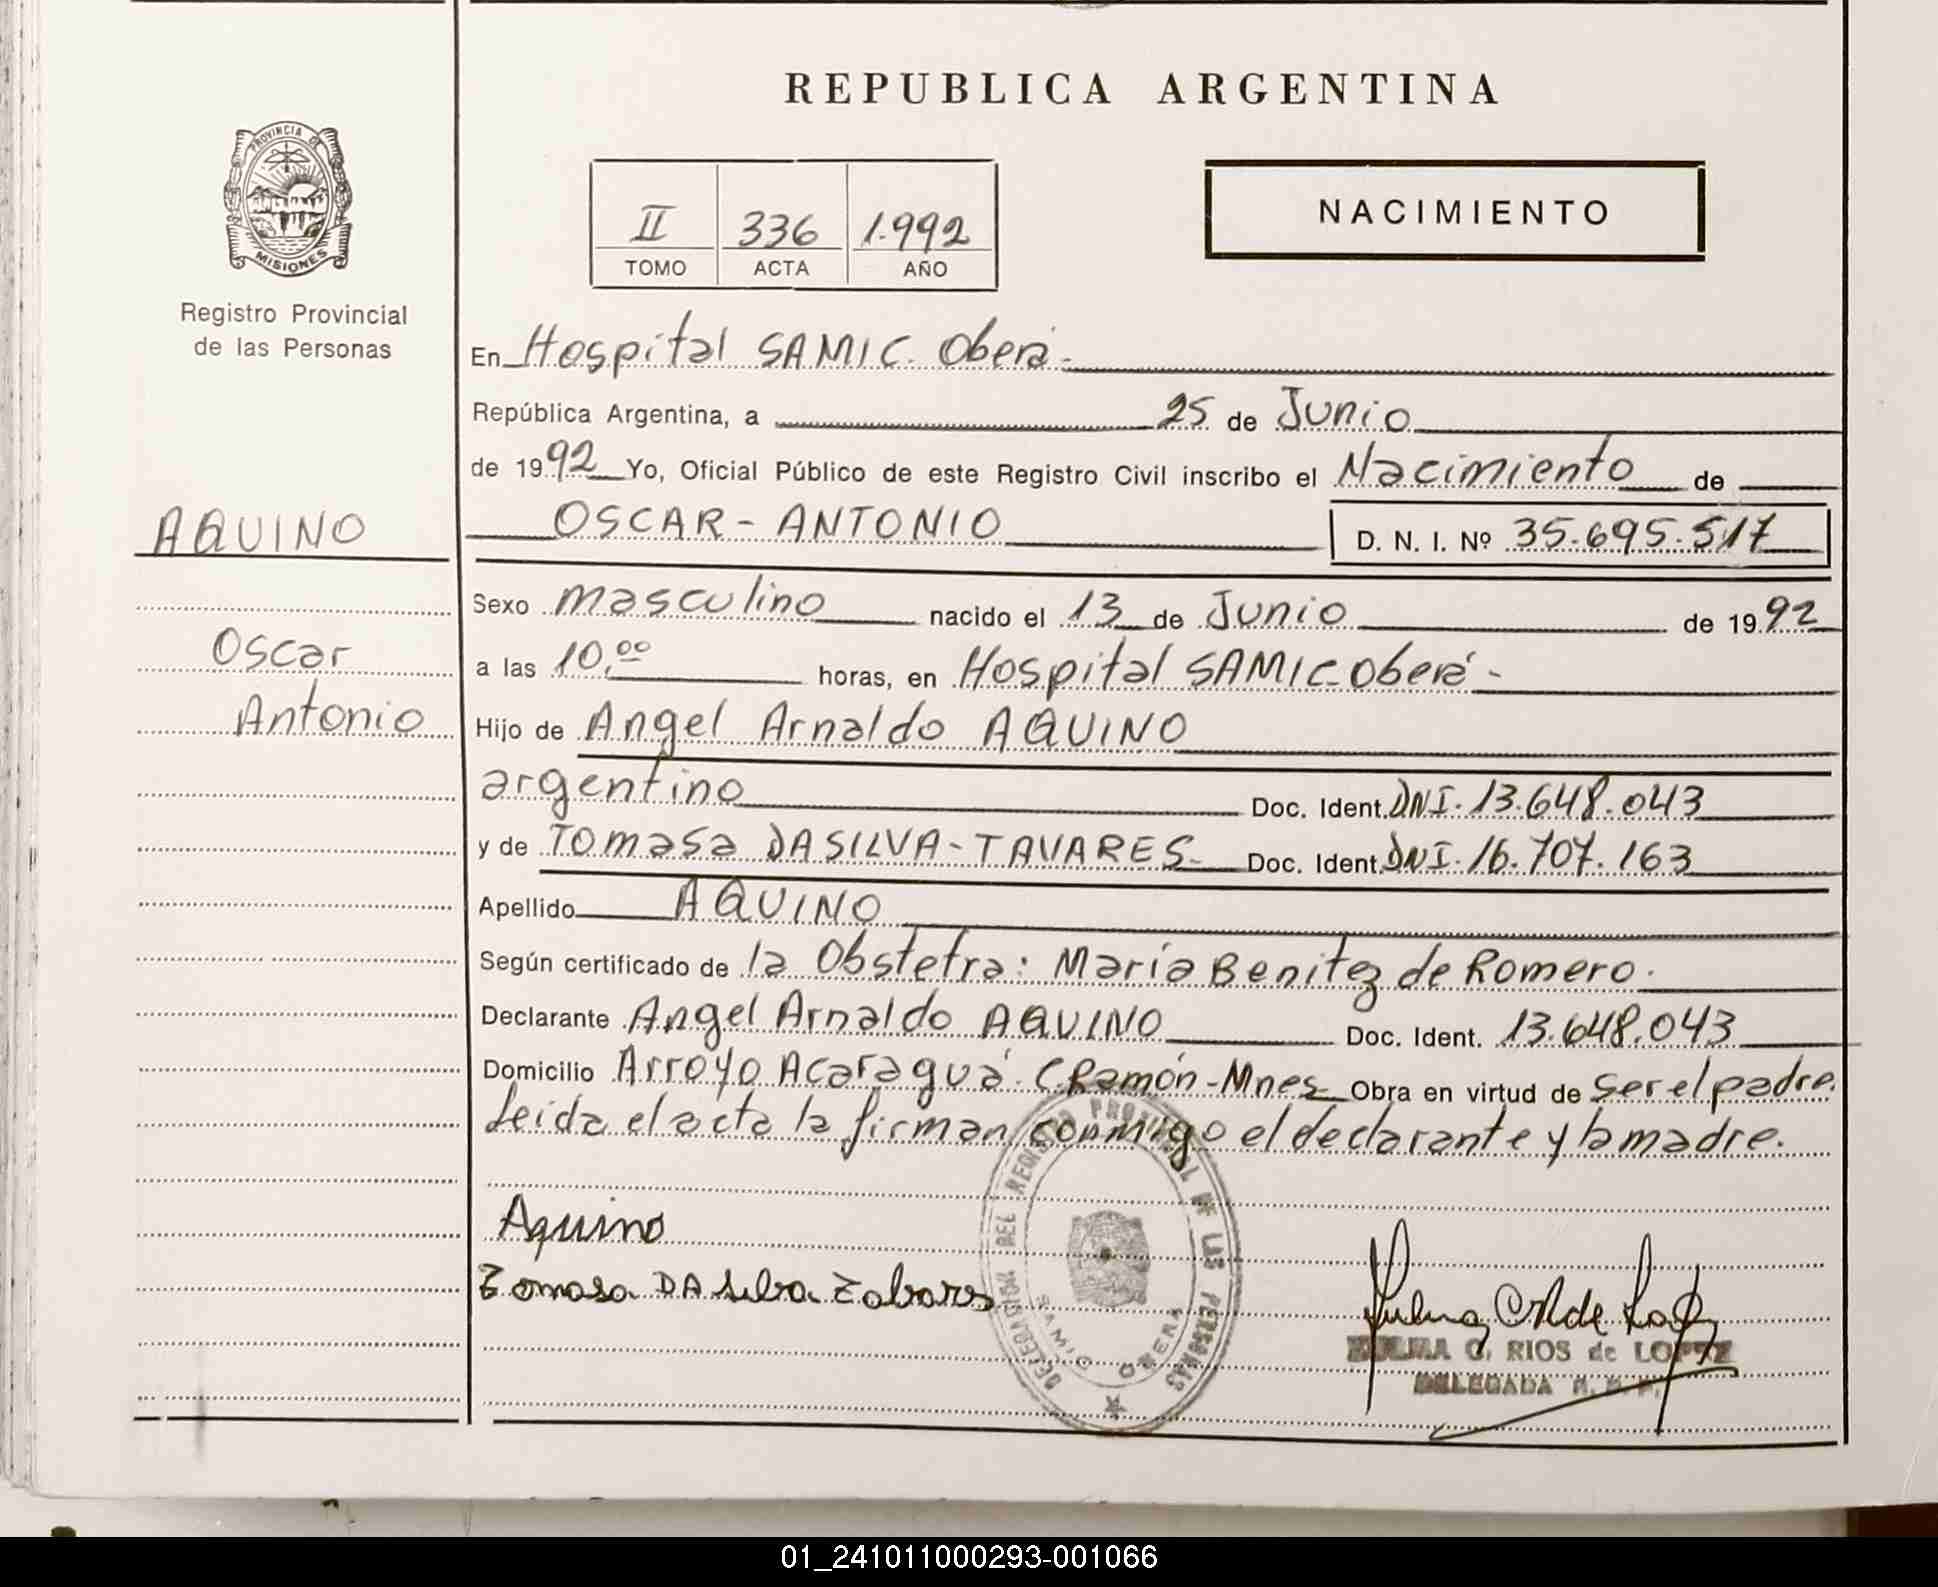 REPUBLICA ARGENTINA
PROVINCIA DE
MISIONES
Registro Provincial
de las Personas
II 336 1.992
TOMO ACTA AÑO
NACIMIENTO
En Hospital SAMIC. Oberá-
República Argentina, a 25 de Junio
de 1992 Yo, Oficial Público de este Registro Civil inscribo el Nacimiento de
AQUINO
Oscar
Antonio
OSCAR-ANTONIO D. N. I. Nº 35.695.517
Sexo masculino nacido el 13 de Junio de 1992
a las 10,00 horas, en Hospital SAMIC-Oberá-
Hijo de Angel Arnaldo AQUINO
argentino Doc. Ident. DNI. 13.648.043
y de Tomasa DA SILVA-TAVARES- Doc. Ident. DNI. 16.707.163
Apellido AQUINO
Según certificado de la Obstetra: María Benitez de Romero.
Declarante Angel Arnaldo AQUINO Doc. Ident. 13.648.043
Domicilio Arroyo Acaraguá- C. Ramón-Mnes- Obra en virtud de ser el padre.
Leida el acta la firman conmigo el declarante y la madre.
Aquino
Tomasa DA silva Tabares
DELEGACION DEL REGISTRO PROVINCIAL DE LAS PERSONAS
OBERA
ZULMA C. RIOS de LOPEZ
DELEGADA R. P. P.
01_241011000293-001066